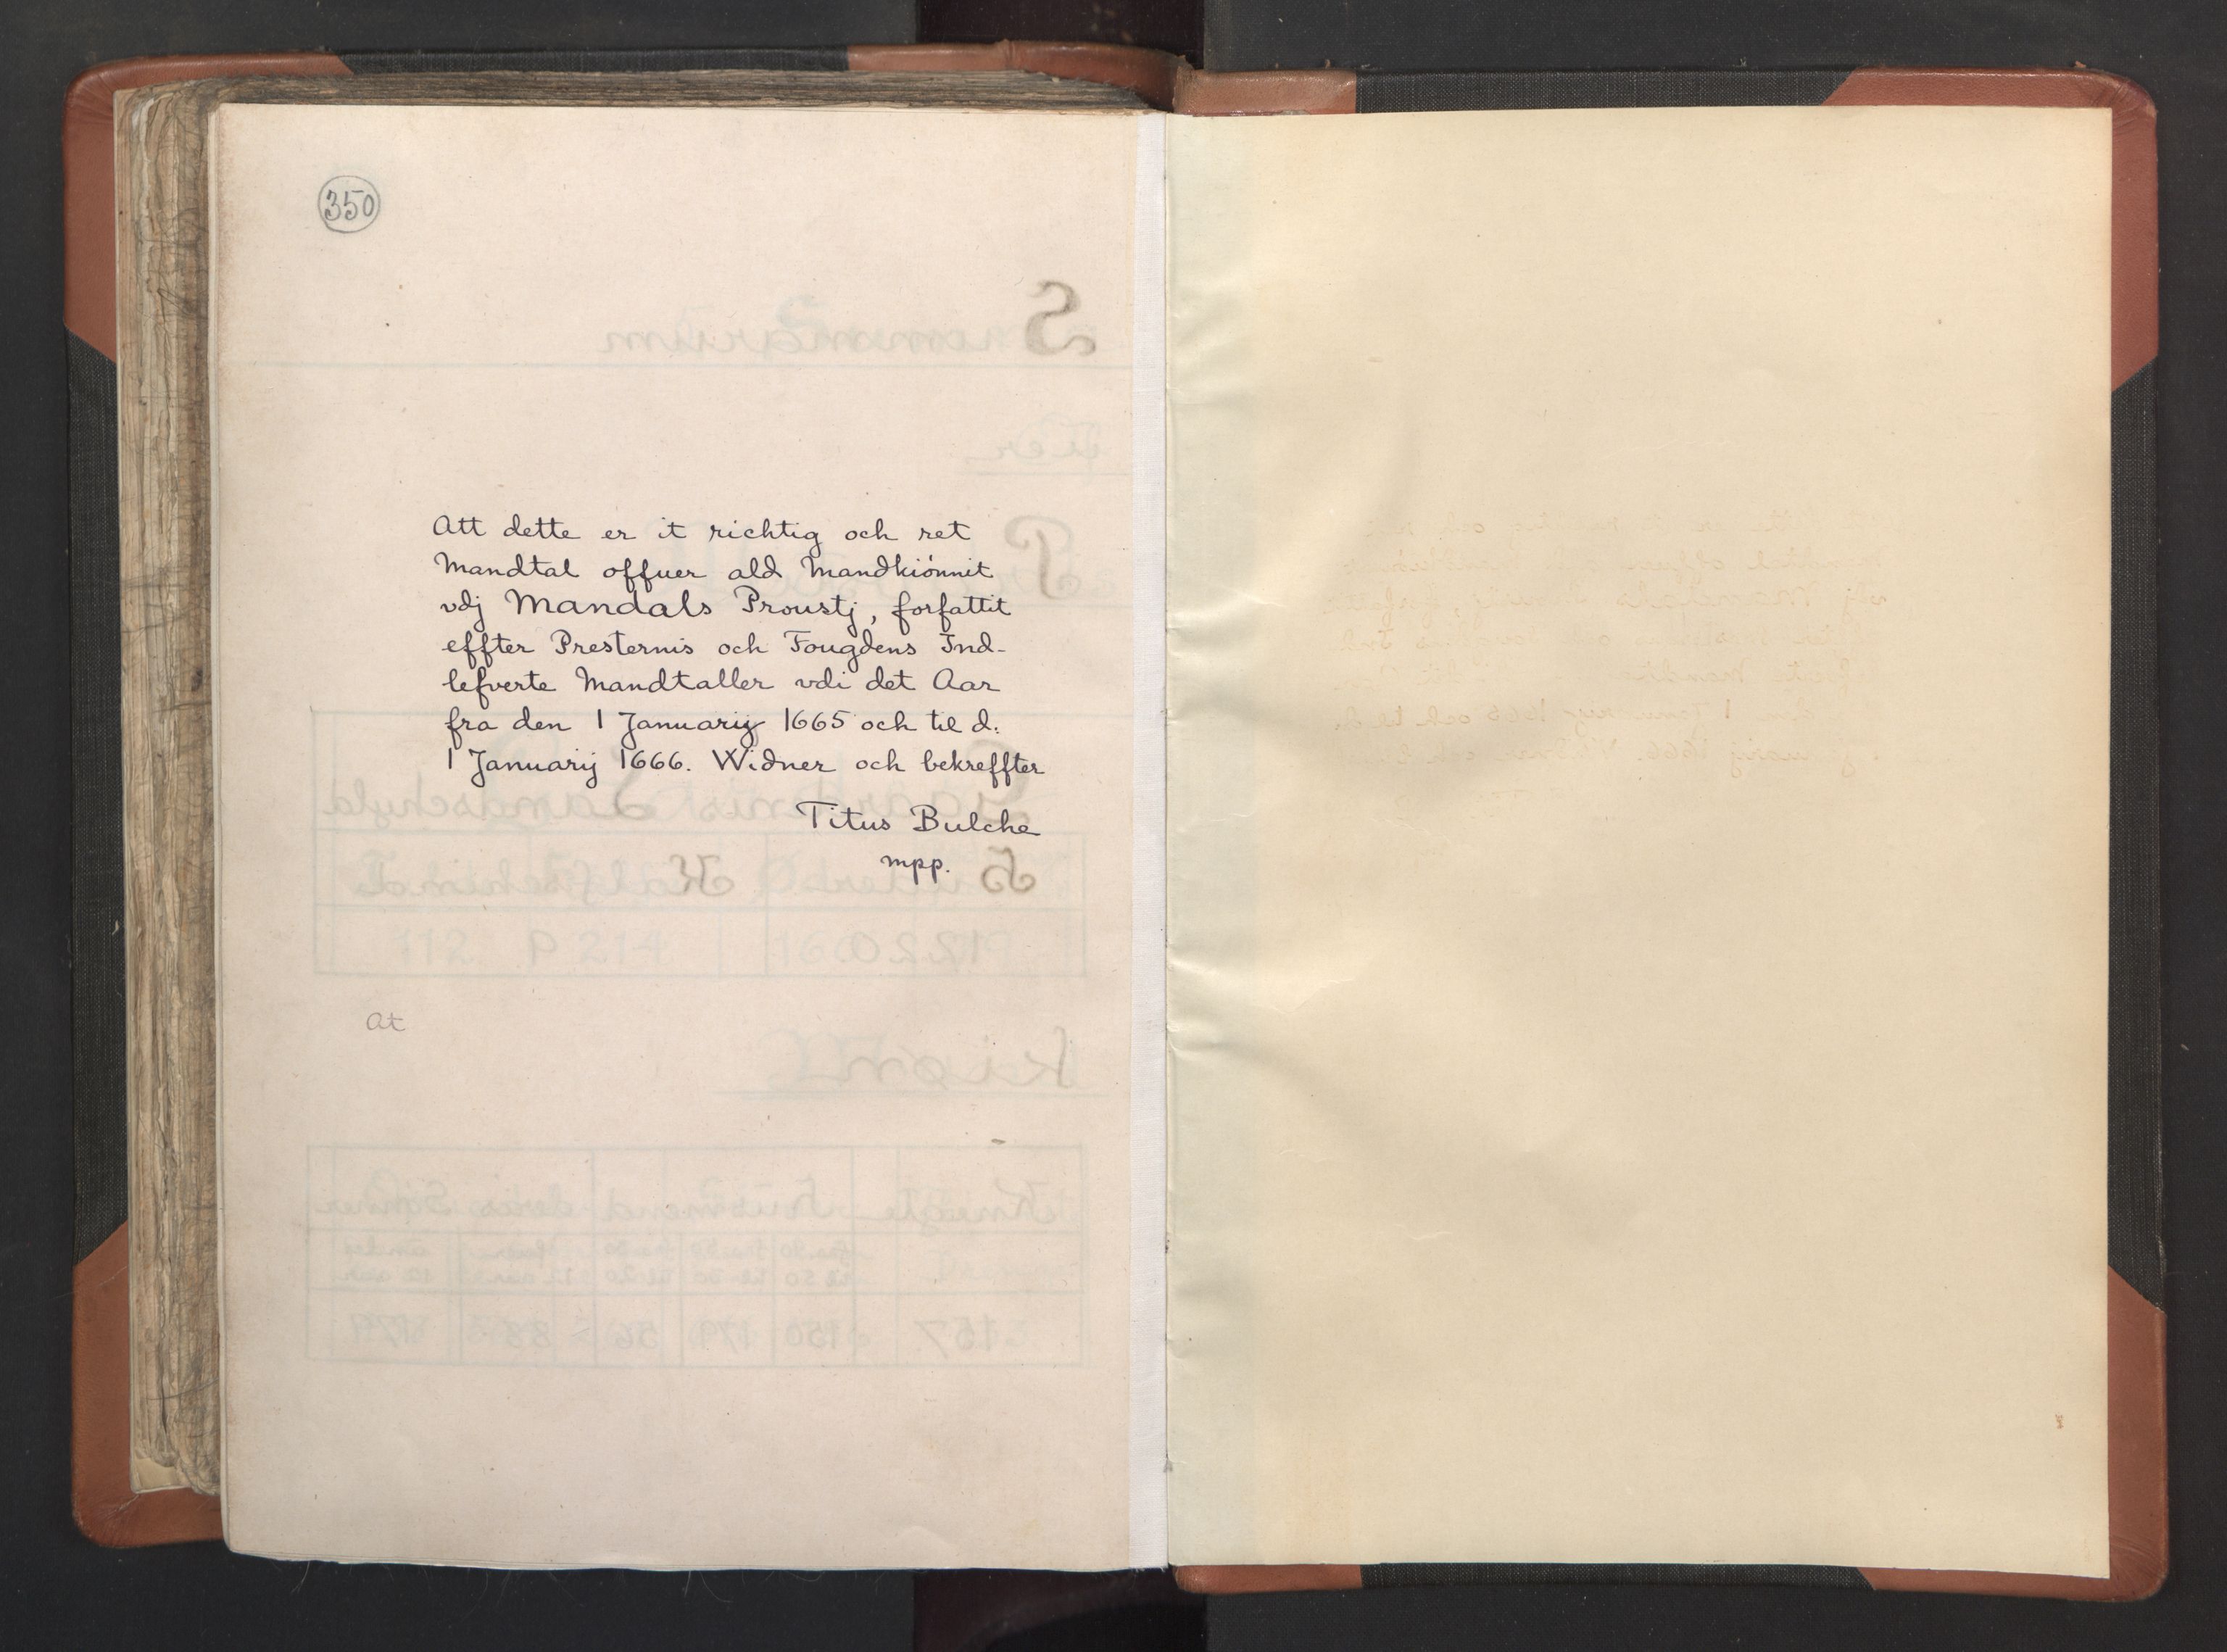 350
Att dette er it richtig och ret
Mandtal offuer ald Mandkiönnit
vdj Mandals Proustj, forfattit
effter Presternis och Fougdens Ind-
lefverte Mandtaller vdi det Aar
fra den 1 Januarij 1665 och til d:
1 Januarij 1666. Widner och bekreffter
Titus Bulche
mpp.
At